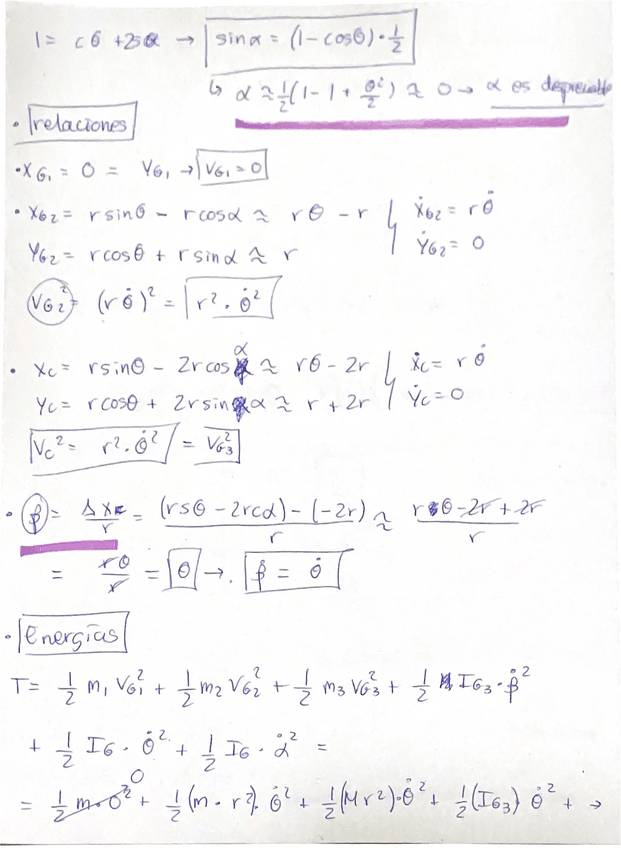 1 = cθ + 2sα → sinα = (1-cosθ)·1/2
↳ α ≈ 1/2(1-1+θ²/2) ≈ 0 → α es depreciable
• relaciones
• XG1 = 0 = YG1 → VG1 = 0
• XG2 = r sinθ - r cosα ≈ rθ - r } ẊG2 = r θ̇
YG2 = r cosθ + r sinα ≈ r } ẎG2 = 0
VG2² = (r θ̇)² = r² · θ̇²
• XC = r sinθ - 2r cos α ≈ rθ - 2r } ẊC = r θ̇
YC = r cosθ + 2r sin α ≈ r + 2r } ẎC = 0
VC² = r² · θ̇² = VG3²
• β = ΔX/r = ((rsθ - 2rcα) - (-2r))/r ≈ (rθ - 2r + 2r)/r
= rθ/r = θ → β̇ = θ̇
• Energías
T = 1/2 m1 VG1² + 1/2 m2 VG2² + 1/2 m3 VG3² + 1/2 IG3 · β̇²
+ 1/2 IG · θ̇² + 1/2 IG · α̇² =
= 1/2 m·0² 0 + 1/2 (m·r²) · θ̇² + 1/2 (Mr²)·θ̇² + 1/2 (IG3) θ̇² + →